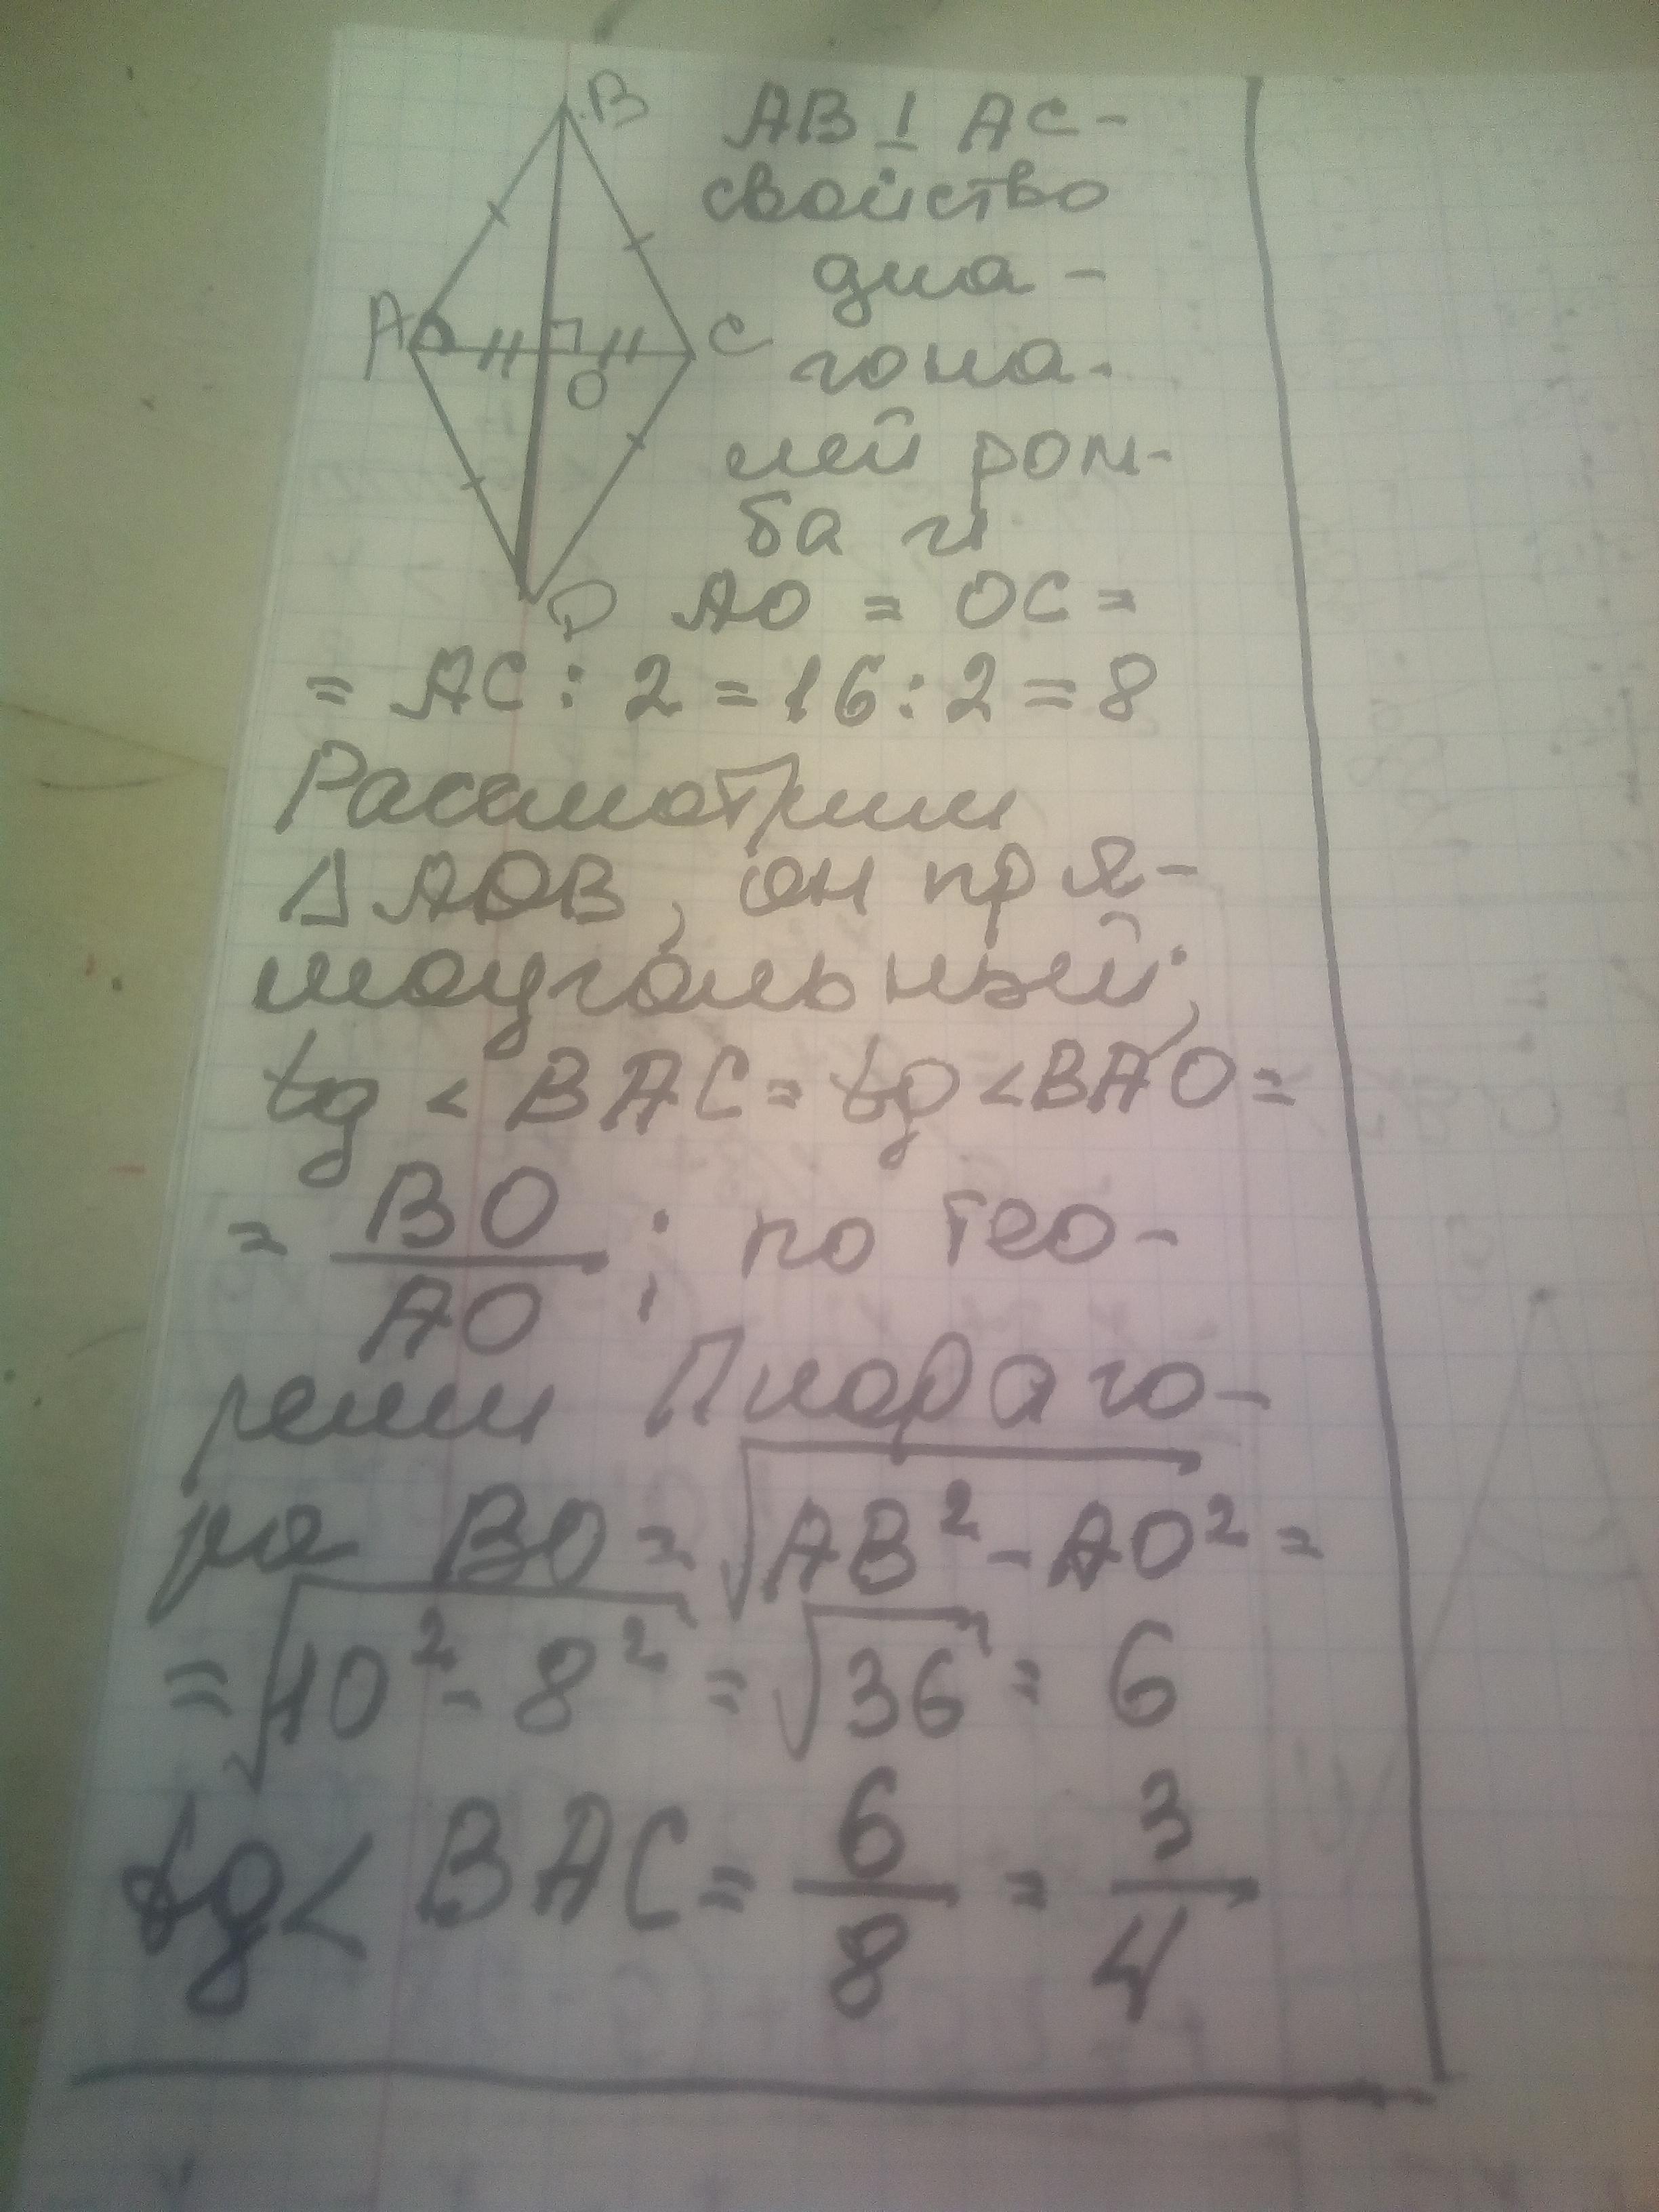 B
A
C
O
D
AB ⊥ AC -
свойство
диа -
гона -
лей ром-
ба и
AO = OC =
= AC : 2 = 16 : 2 = 8
Рассмотрим
Δ AOB, он пря-
моугольный;
tg < BAC = tg < BAO =
= BO/AO ; по тео-
реми Пифаго-
ра BO = √(AB² - AO²) =
= √(10² - 8²) = √36 = 6
tg < BAC = 6/8 = 3/4